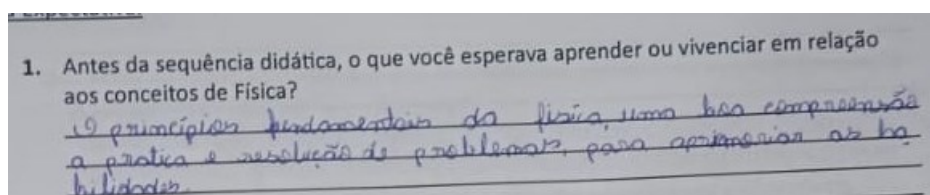 1. Antes da sequência didática, o que você esperava aprender ou vivenciar em relação
aos conceitos de Física?
princípios fundamentais da física, uma boa compreensão
a pratica e resolução de problemas, para aprimorar as ha
bilidades.